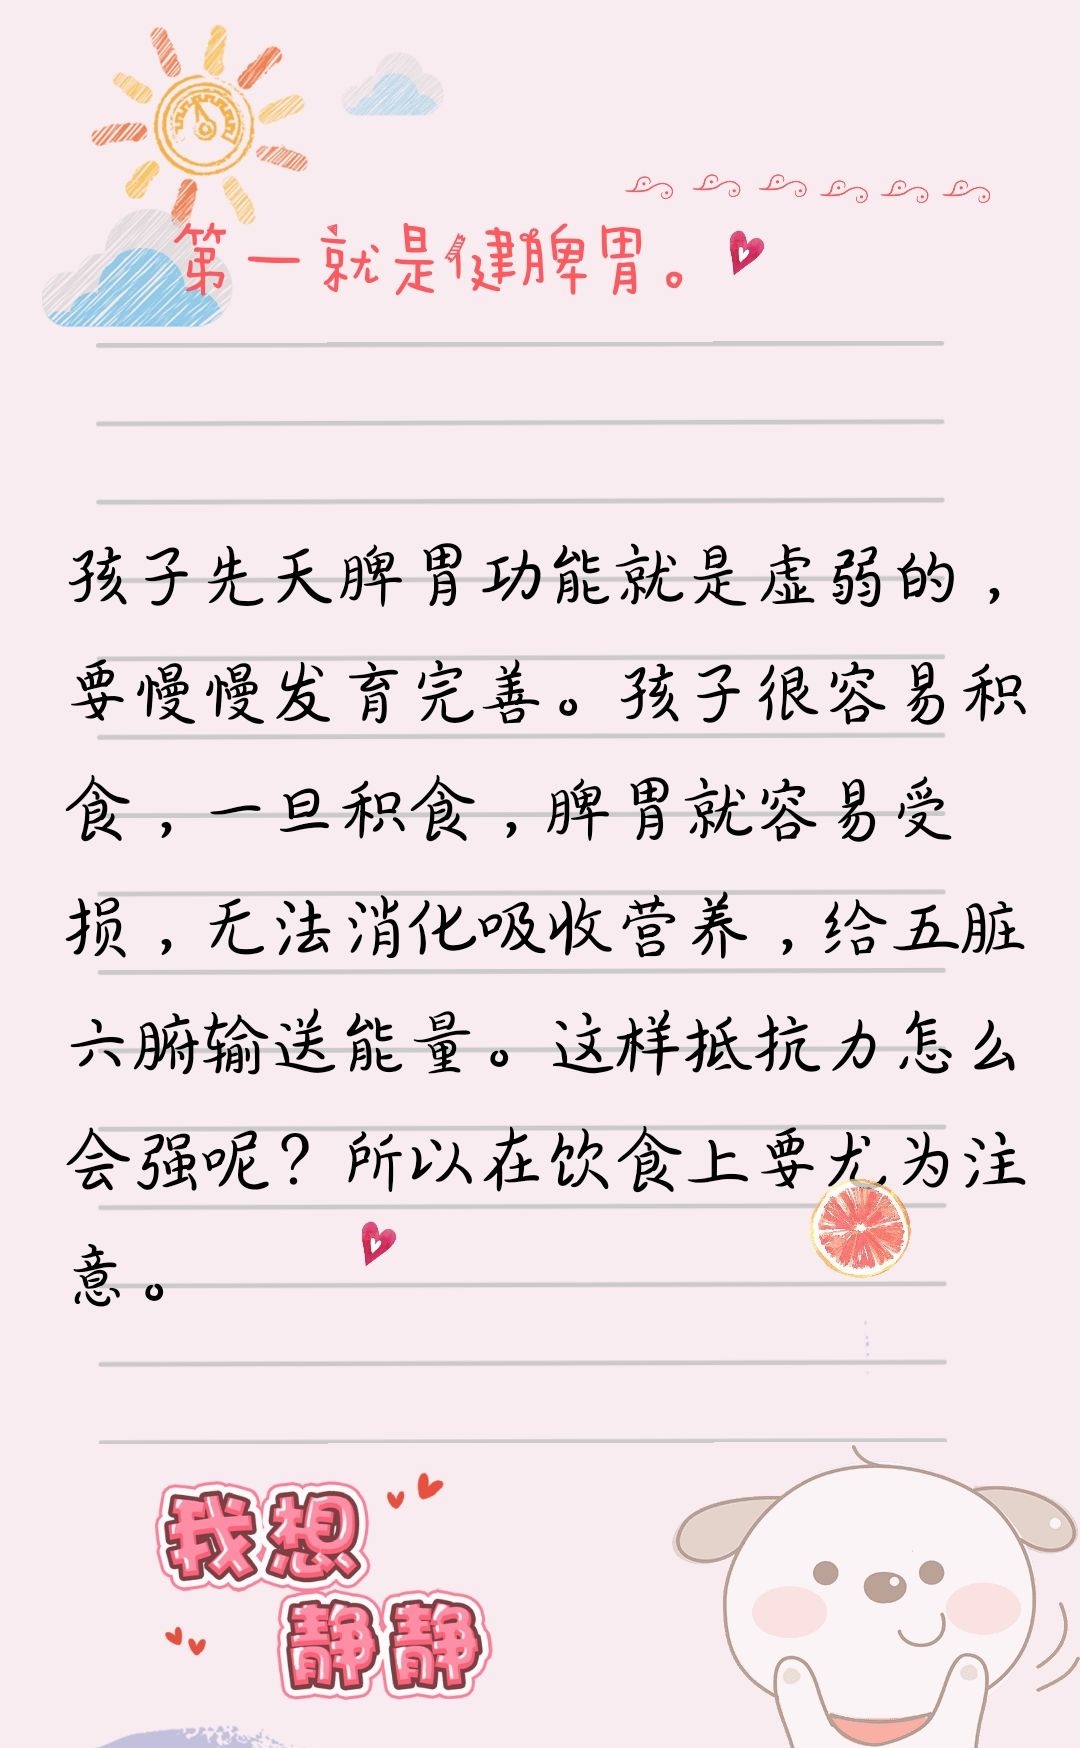 第一就是健脾胃。
孩子先天脾胃功能就是虚弱的，
要慢慢发育完善。孩子很容易积
食，一旦积食，脾胃就容易受
损，无法消化吸收营养，给五脏
六腑输送能量。这样抵抗力怎么
会强呢？所以在饮食上要尤为注
意。
我想
静静